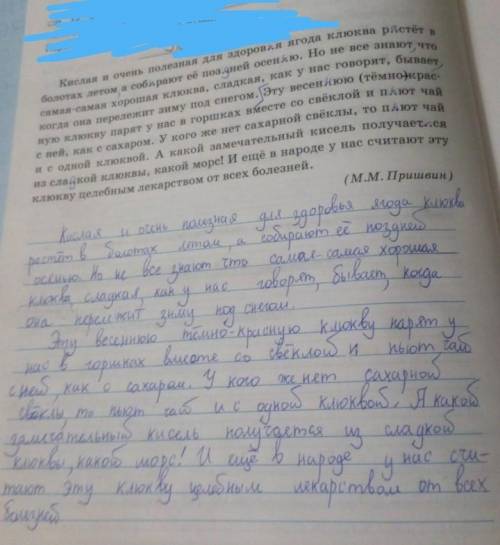 Кислая и очень полезная для здоровья ягода клюква растёт в
болотах летом, а собирают её поздней осенью. Но не все знают, что
самая-самая хорошая клюква, сладкая, как у нас говорят, бывает,
когда она перележит зиму под снегом. Эту весеннюю (тёмно)крас-
ную клюкву парят у нас в горшках вместе со свёклой и пьют чай
с ней, как с сахаром. У кого же нет сахарной свёклы, то пьют чай
и с одной клюквой. А какой замечательный кисель получается
из сладкой клюквы, какой морс! И ещё в народе у нас считают эту
клюкву целебным лекарством от всех болезней.
(М.М. Пришвин)
Кислая и очень полезная для здоровья ягода клюква
растёт в болотах летом, а собирают её поздней
осенью. Но не все знают что самая-самая хорошая
клюква, сладкая, как у нас говорят, бывает, когда
она перележит зиму под снегом.
Эту весеннюю тёмно-красную клюкву парят у
нас в горшках вместе со свёклой и пьют чай
с ней, как с сахаром. У кого же нет сахарной
свёклы, то пьют чай и с одной клюквой. А какой
замечательный кисель получается из сладкой
клюквы, какой морс! И ещё в народе у нас счи-
тают эту клюкву целебным лекарством от всех
болезней